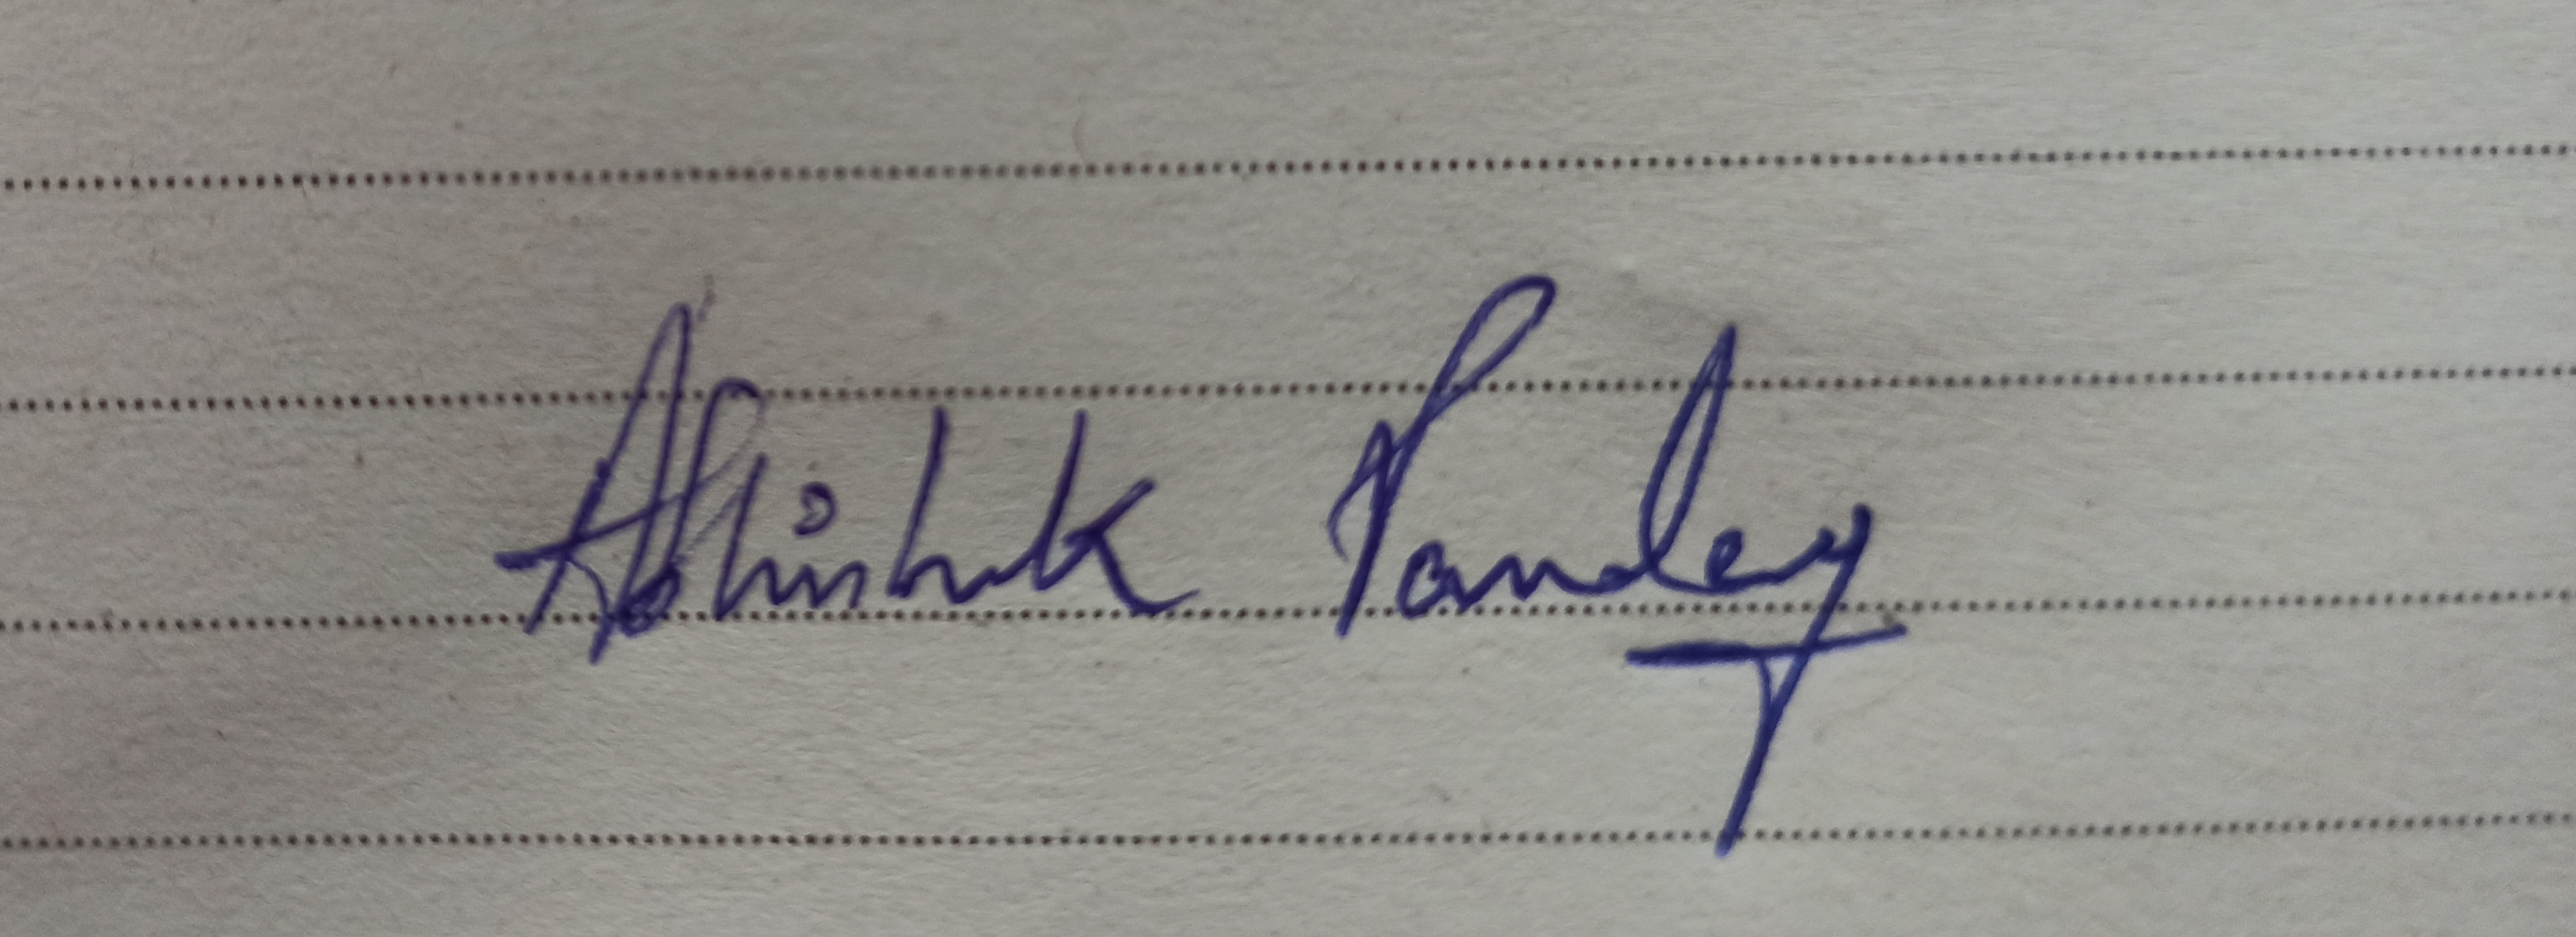 Abhishek Pandey